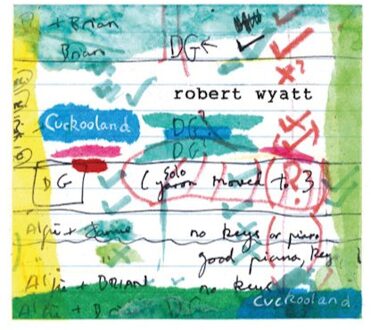 + Brian
Brian DG
robert wyatt
Cuckooland
DG?
DG?
DG (solo yaron moved to 3)
Alfie + Jamie no keys or piano
good piano, key
Alfie + BRIAN no keys
cuckooland